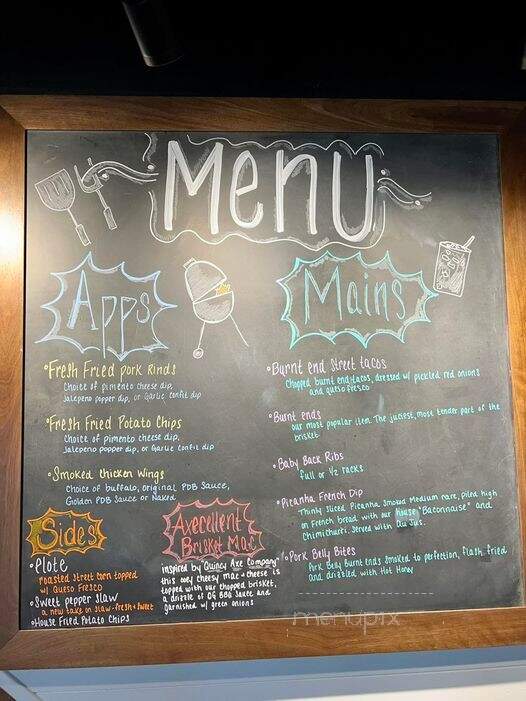 Menu
Apps
• Fresh Fried pork Rinds
Choice of pimento cheese dip,
Jalapeno popper dip, or Garlic confit dip
• Fresh Fried Potato Chips
Choice of pimento cheese dip,
Jalapeno popper dip, or Garlic confit dip
• Smoked Chicken Wings
Choice of buffalo, original PDB Sauce,
Golden PDB Sauce or Naked
Sides
• Elote
roasted street corn topped
w/ Queso Fresco
• Sweet pepper slaw
a new take on slaw - fresh + sweet
• House Fried Potato Chips
Axecellent
Brisket Mac
inspired by "Quincy Axe Company"
this ooey cheesy mac + cheese is
topped with our chopped brisket,
a drizzle of OG BBQ sauce and
garnished w/ green onions
Mains
• Burnt end Street tacos
Chopped burnt end tacos, dressed w/ pickled red onions
and queso fresco
• Burnt ends
our most popular item. The juciest, most tender part of the
brisket
• Baby Back Ribs
full or 1/2 racks
• Picanha French Dip
Thinly sliced Picanha smoked medium rare, piled high
on French bread with our house "Baconnaise" and
Chimichurri. Served with Au Jus.
• Pork Belly Bites
Pork Belly Burnt ends smoked to perfection, flash fried
and drizzled with Hot Honey
menupix